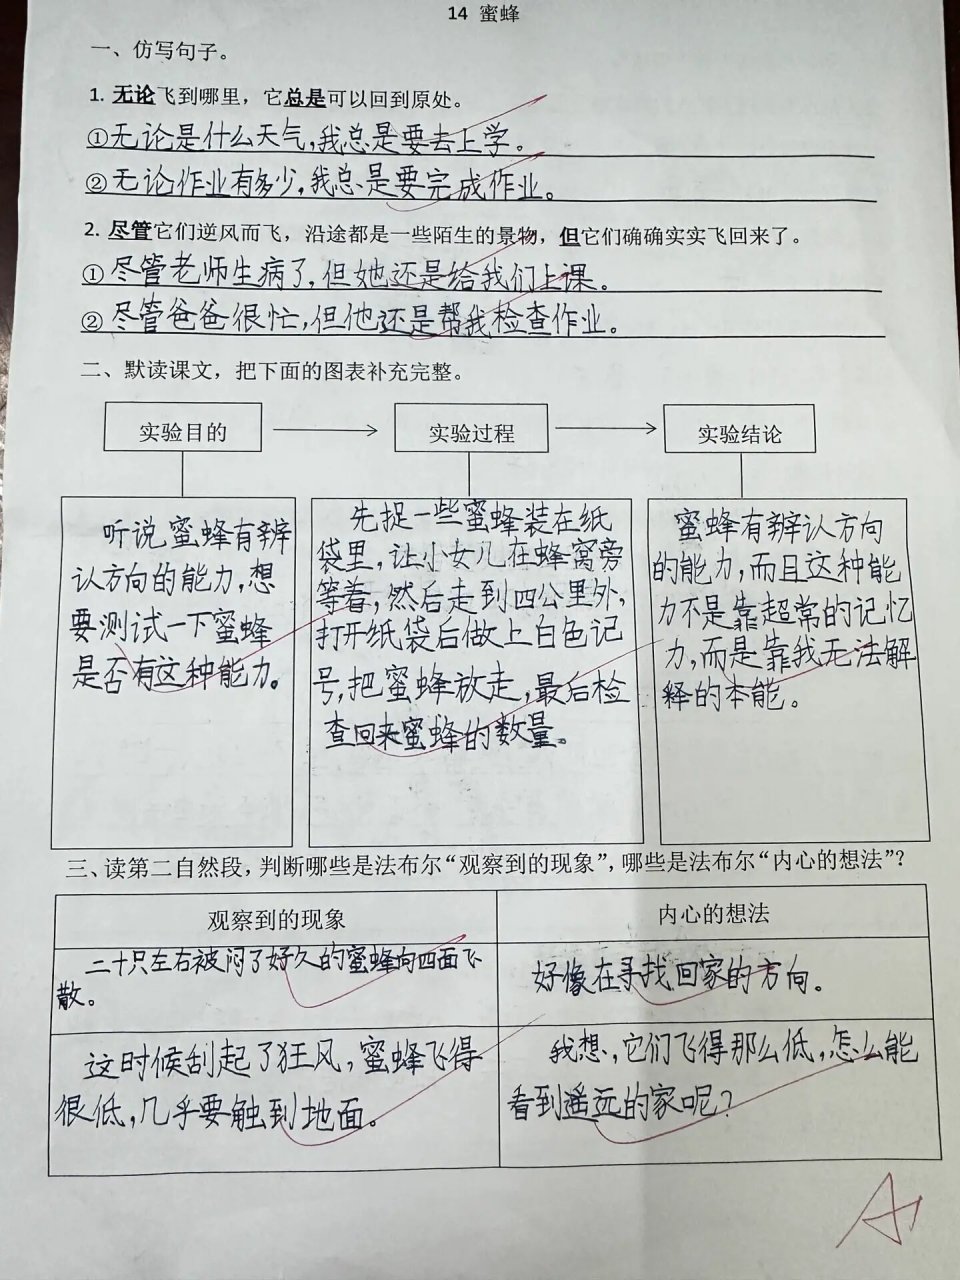 14 蜜蜂
一、仿写句子。
1. 无论飞到哪里，它总是可以回到原处。
①无论是什么天气，我总是要去上学。
②无论作业有多少，我总是要完成作业。
2. 尽管它们逆风而飞，沿途都是一些陌生的景物，但它们确确实实飞回来了。
①尽管老师生病了，但她还是给我们上课。
②尽管爸爸很忙，但他还是帮我检查作业。
二、默读课文，把下面的图表补充完整。
实验目的
实验过程
实验结论
听说蜜蜂有辨
认方向的能力，想
要测试一下蜜蜂
是否有这种能力。
先捉一些蜜蜂装在纸
袋里，让小女儿在蜂窝旁
等着，然后走到四公里外，
打开纸袋后做上白色记
号，把蜜蜂放走，最后检
查回来蜜蜂的数量。
蜜蜂有辨认方向
的能力，而且这种能
力不是靠超常的记忆
力，而是靠我无法解
释的本能。
三、读第二自然段，判断哪些是法布尔“观察到的现象”，哪些是法布尔“内心的想法”？
观察到的现象
内心的想法
二十只左右被闷了好久的蜜蜂向四面飞
散。
好像在寻找回家的方向。
这时候刮起了狂风，蜜蜂飞得
很低，几乎要触到地面。
我想，它们飞得那么低，怎么能
看到遥远的家呢？
A